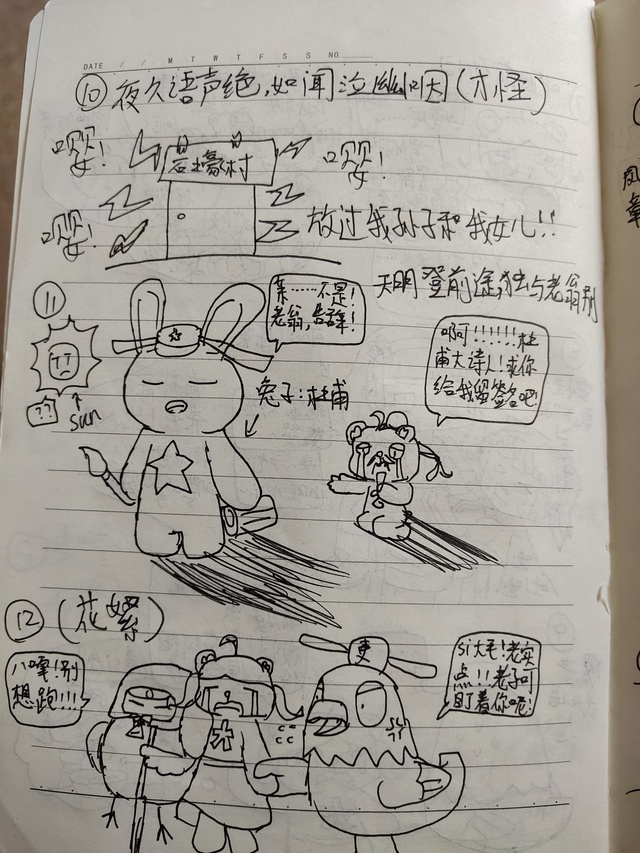 DATE / / M T W T F S S NO
⑩ 夜久语声绝,如闻泣幽咽(才怪)
嘤!
石壕村
嘤!
嘤!
放过我孙子和我女儿!!
天明登前途,独与老翁别
⑪
不是!
老翁,告辞!
啊!!!!!!杜
甫大诗人!求你
给我留签名吧!
??
sun
兔子:杜甫
⑫ (花絮)
八嘎!别
想跑!!!
吏
Si大毛!老实
点!!老子可
盯着你呢!